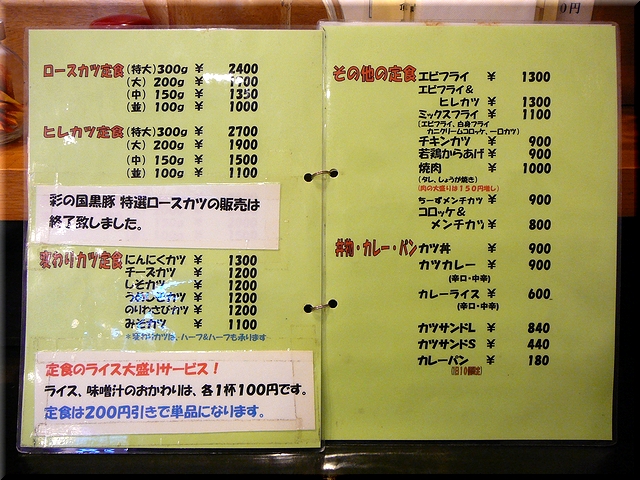 ロースカツ定食 (特大) 300g ¥ 2400
(大) 200g ¥ 1700
(中) 150g ¥ 1350
(並) 100g ¥ 1000
ヒレカツ定食 (特大) 300g ¥ 2700
(大) 200g ¥ 1900
(中) 150g ¥ 1500
(並) 100g ¥ 1100
彩の国黒豚 特選ロースカツの販売は
終了致しました。
変わりカツ定食 にんにくカツ ¥ 1300
チーズカツ ¥ 1200
しそカツ ¥ 1200
うめしそカツ ¥ 1200
のりわさびカツ ¥ 1200
みそカツ ¥ 1100
*変わりカツは、ハーフ&ハーフも承ります
定食のライス大盛りサービス!
ライス、味噌汁のおかわりは、各1杯100円です。
定食は200円引きで単品になります。
円
その他の定食 エビフライ ¥ 1300
エビフライ&
ヒレカツ ¥ 1300
ミックスフライ ¥ 1100
(エビフライ、白身フライ
カニクリームコロッケ、一口カツ)
チキンカツ ¥ 900
若鶏からあげ ¥ 900
焼肉 ¥ 1000
(タレ、しょうが焼き)
(肉の大盛りは150円増し)
ちーずメンチカツ ¥ 900
コロッケ&
メンチカツ ¥ 800
丼物・カレー・パン カツ丼 ¥ 900
カツカレー ¥ 900
(辛口・中辛)
カレーライス ¥ 600
(辛口・中辛)
カツサンドL ¥ 840
カツサンドS ¥ 440
カレーパン ¥ 180
(1日10個限定)